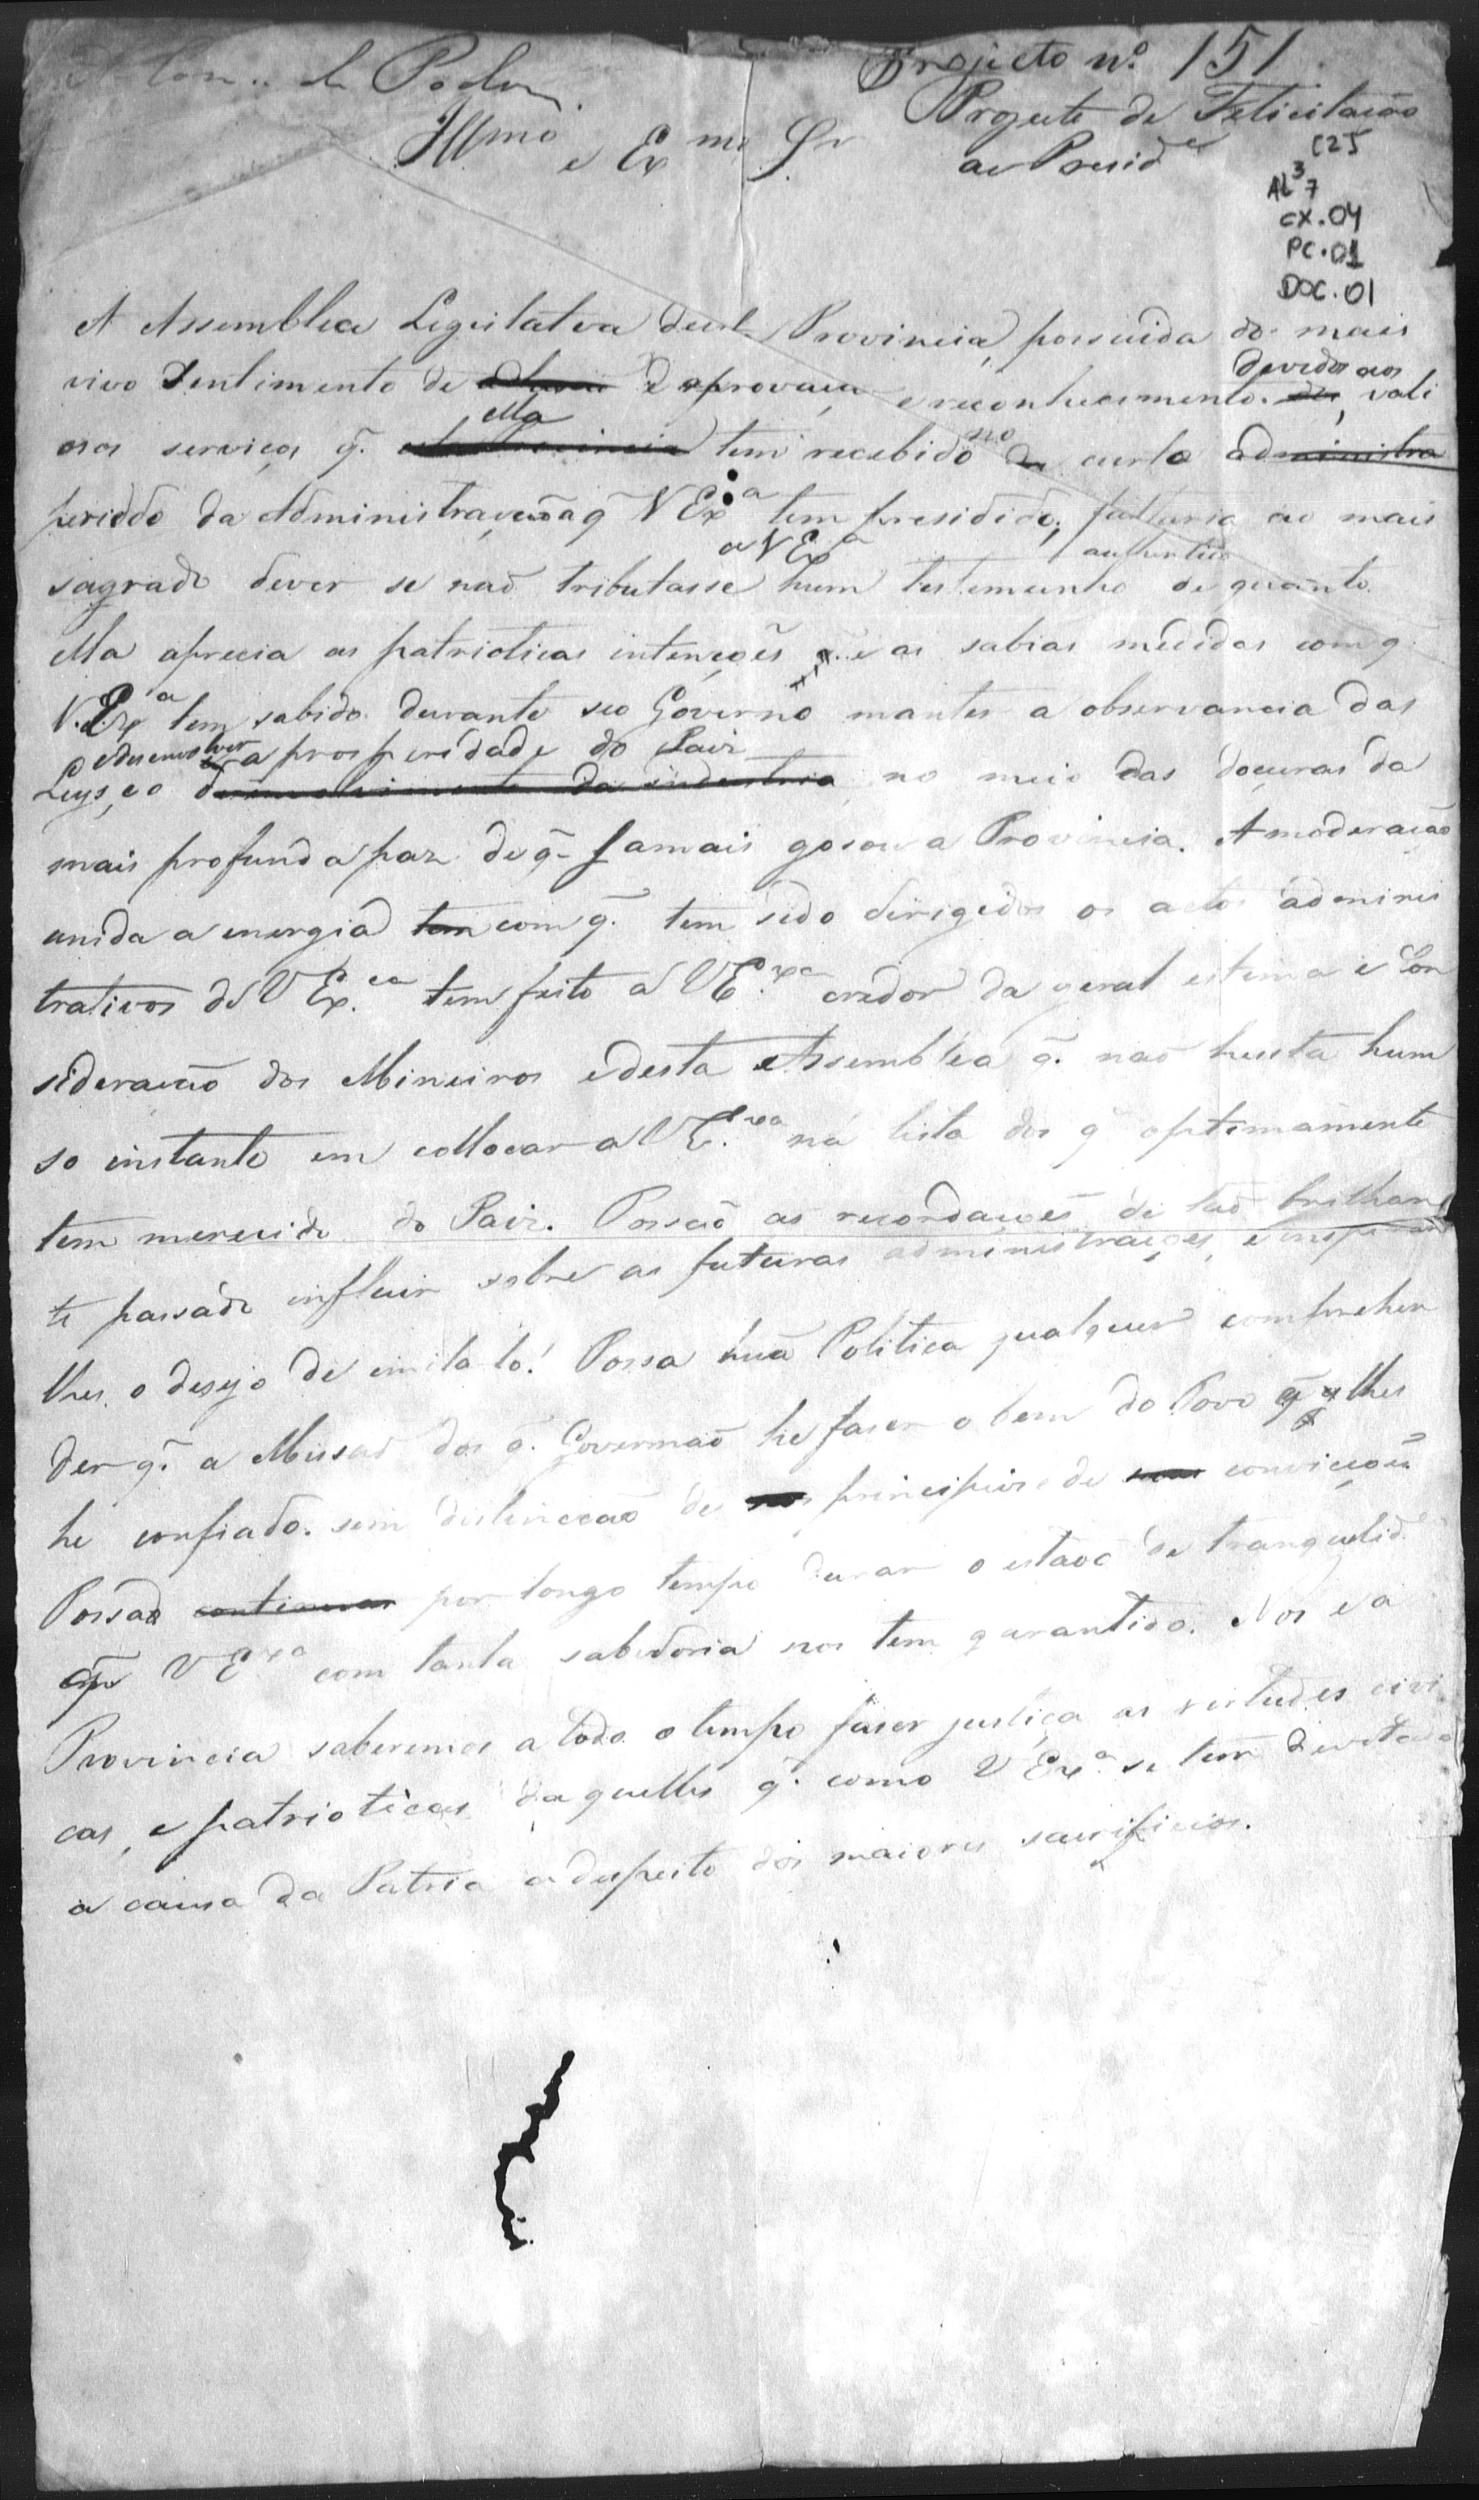 Projecto nº 151
Progecto de Felicitação
ao Preside
Illmo e Exmo Sr
[2]
AL 3 7
CX. 04
PC. 01
DOC. 01
A Assemblea Legislativa desta Provincia, possuida do mais
devidos aos
vivo Sentimento de aprovação e reconhecimento vali
ella
no
osos serviços q. tem recebido curto administra
periodo da Administração q VExa tem presidido, faltaria ao mais
a VExa
authentico
sagrado dever se não tributasse hum testemunho de quanto
ella aprecia as patrioticas intenções e as sabias medidas com q.
V.Exa tem sabido durante seo Governo manter a observancia das
e desenvolver a prosperidade do Paiz
Leys, e o desenvolvimento da industria no meio das doçuras da
mais profunda paz de q. Jamais gosou a Provincia. A moderação
unida a energia tem com q. tem sido dirigidos os actos adminis
trativos de VEx.ca tem feito a VE.xa credor da geral estima e Con
sideração dos Mineiros e desta Assemblea q. não hesita hum
so instante em collocar a VE.xa na lista dos q optimamente
tem merecido do Paiz. Possão as recordações de tão brilhan
te passado influir sobre as futuras administrações, e inspirar
lhes o desejo de imita-lo! Possa huã Politica qualquer comprehen
der q. a Missão dos q. Governão he faser o bem do Povo q lhes
he confiado. sem distincção de principios e de convicções
Possa continuar por longo tempo durar o estado de tranquilide
que VExa com tanta sabedoria nos tem garantido. Nos e a
Provincia saberemos a todo o tempo faser justiça as virtudes civi
cas, e patrioticas daquelles q. como VExa se tem devotado
a causa da Patria a despeito dos maiores sacrificios.